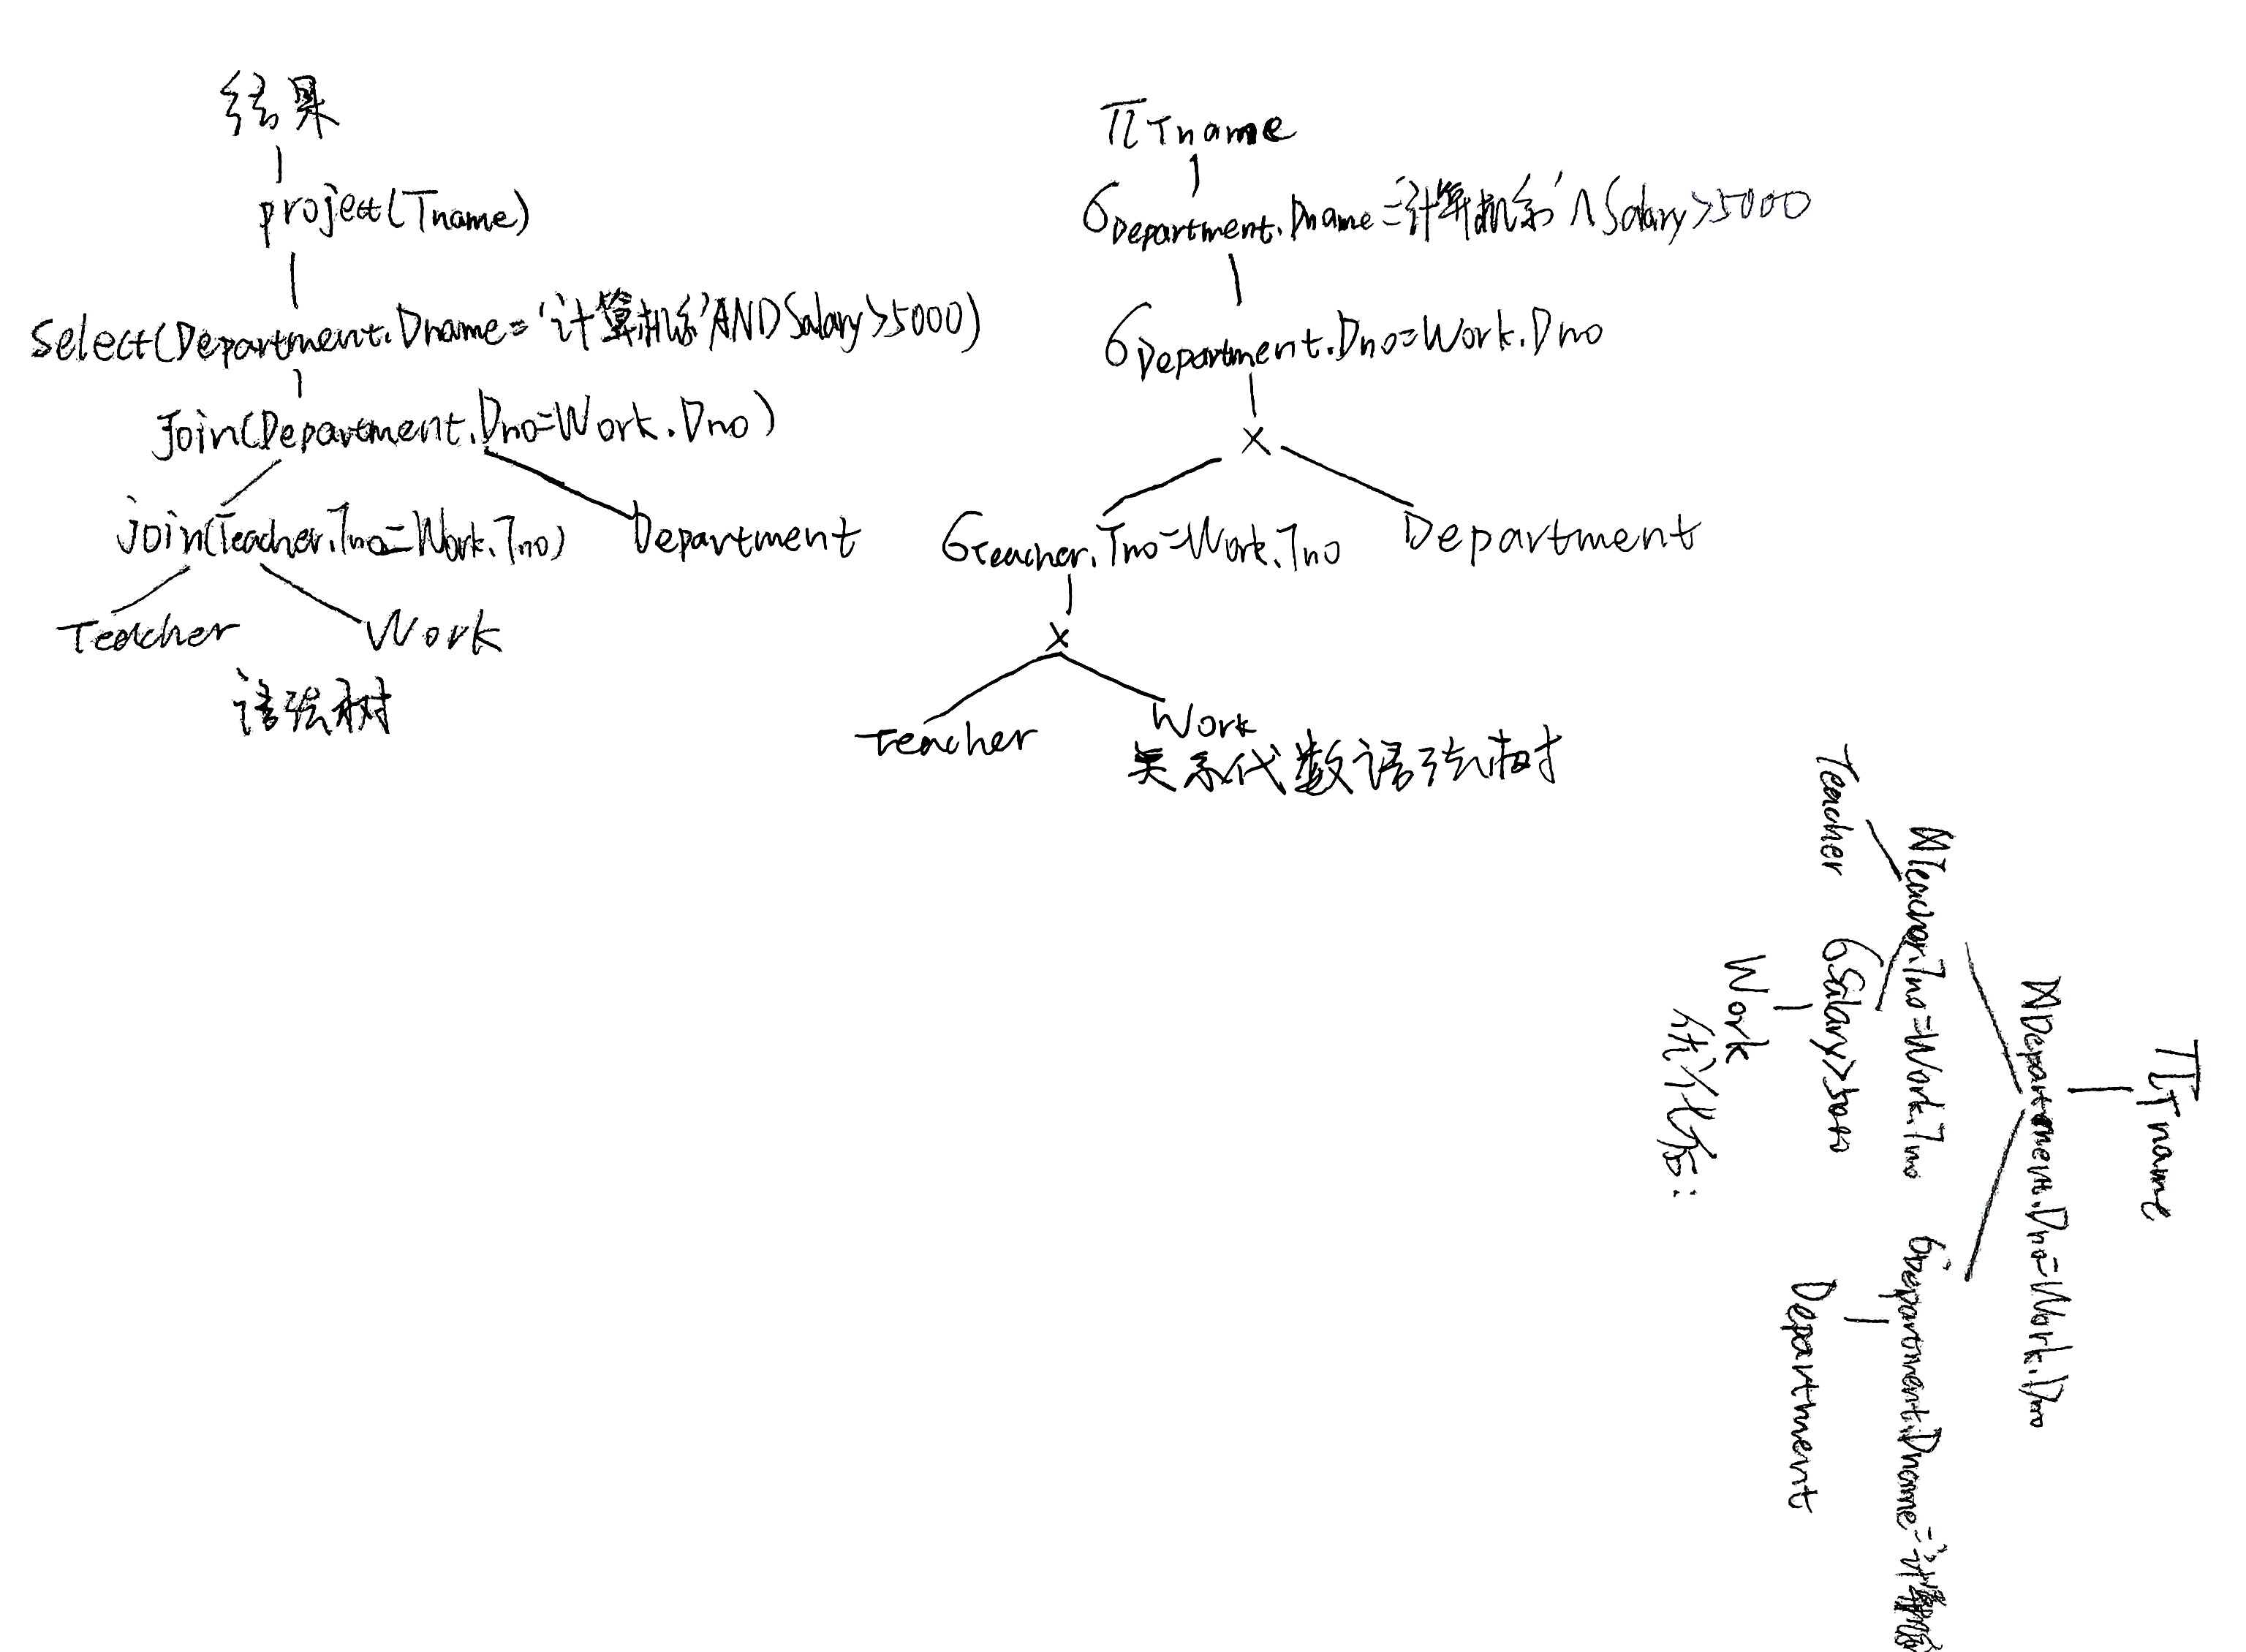 结果
project(Tname)
Select(Department.Dname='计算机系'AND Salary>5000)
Join(Department.Dno=Work.Dno)
join(Teacher.Tno=Work.Tno)
Department
Teacher
Work
语法树
πTname
σDepartment.Dname='计算机系'∧Salary>5000
σDepartment.Dno=Work.Dno
×
σTeacher.Tno=Work.Tno
Department
×
Teacher
Work
关系代数语法树
πTname
⋈Department.Dno=Work.Dno
⋈Teacher.Tno=Work.Tno
σDepartment.Dname='计算机系
Teacher
σSalary>5000
Department
Work
优化后: